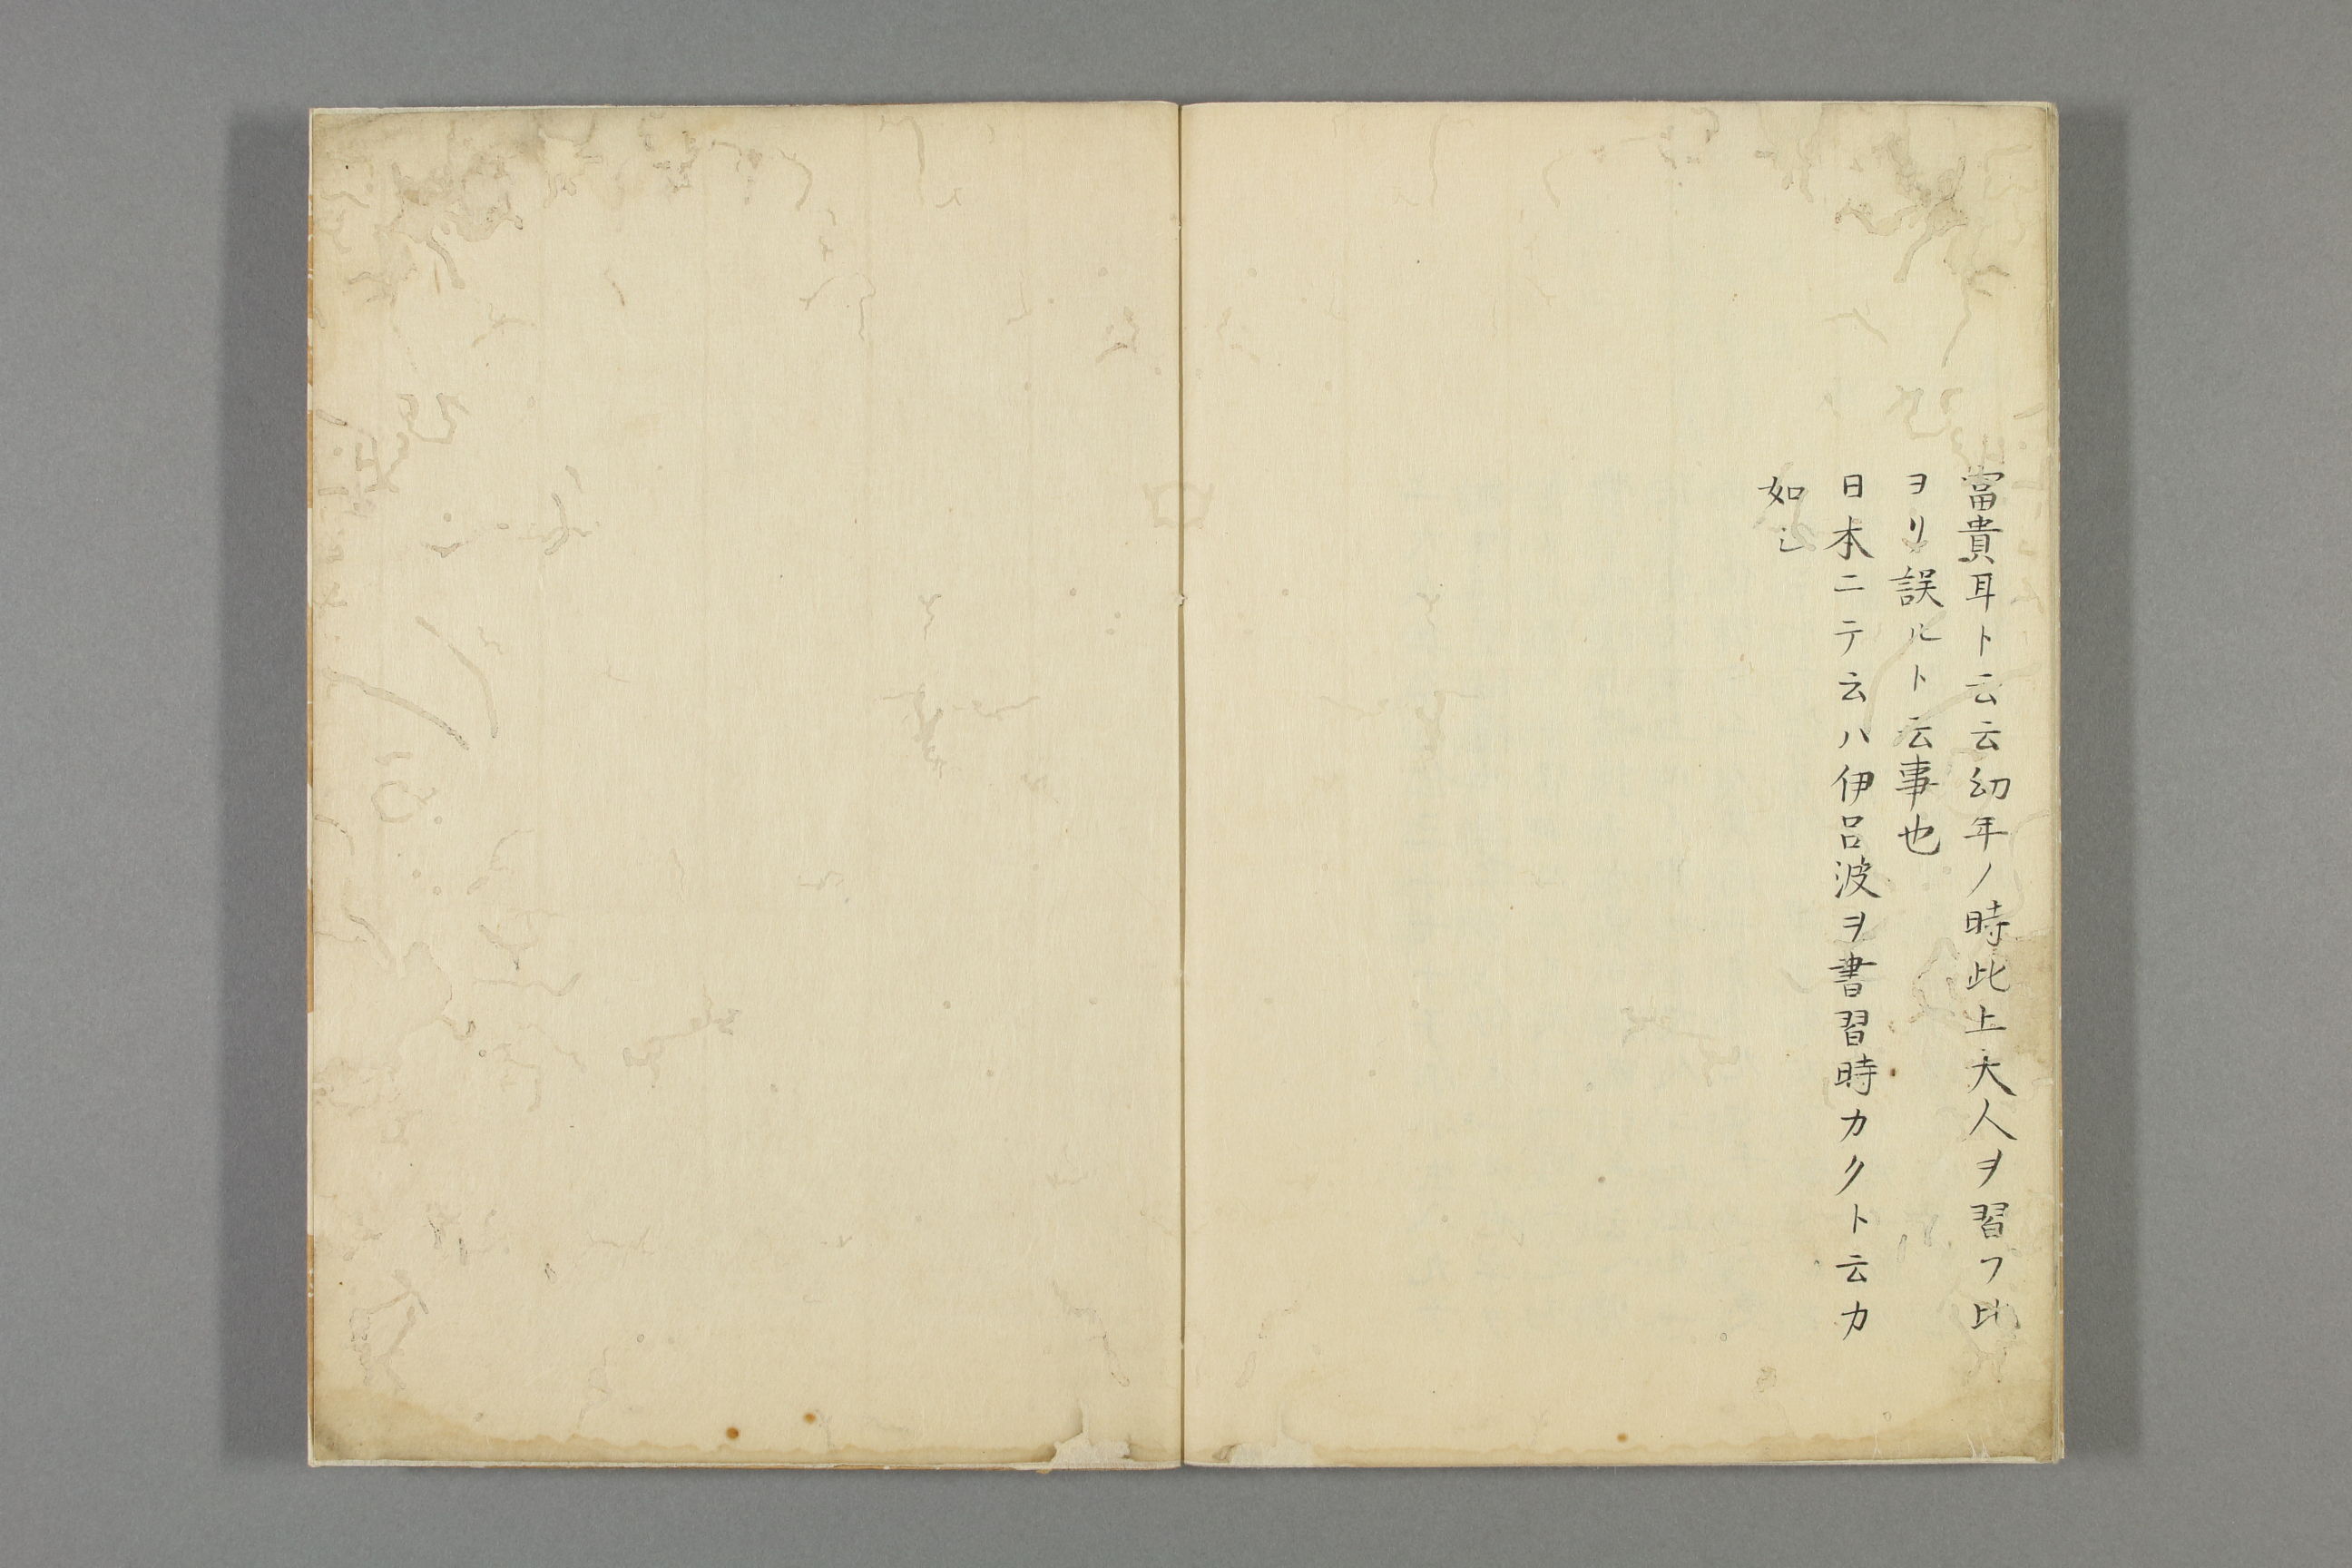 富貴耳ト云云幼年ノ時此上大人ヲ習フ比
ヨリ誤ルト云事也
日本ニテ云ハ伊呂波ヲ書習時カクト云カ
如シ